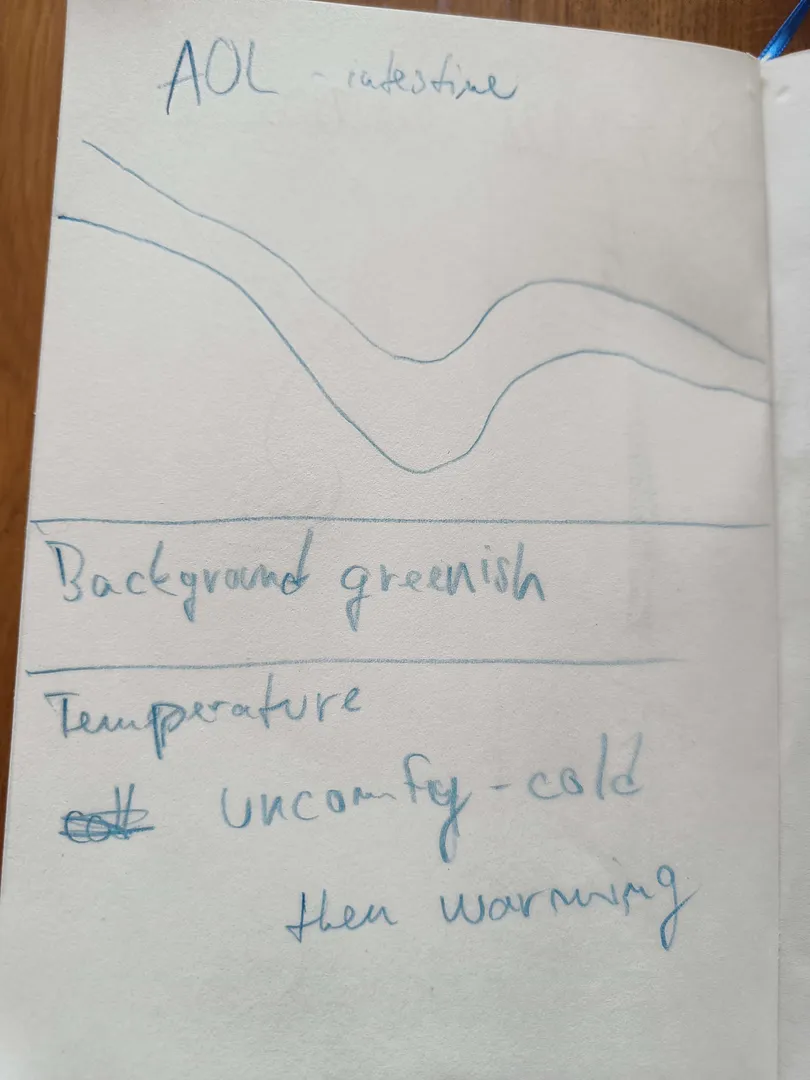 AOL - intestine
Background greenish
Temperature
uncomfy - cold
then warming